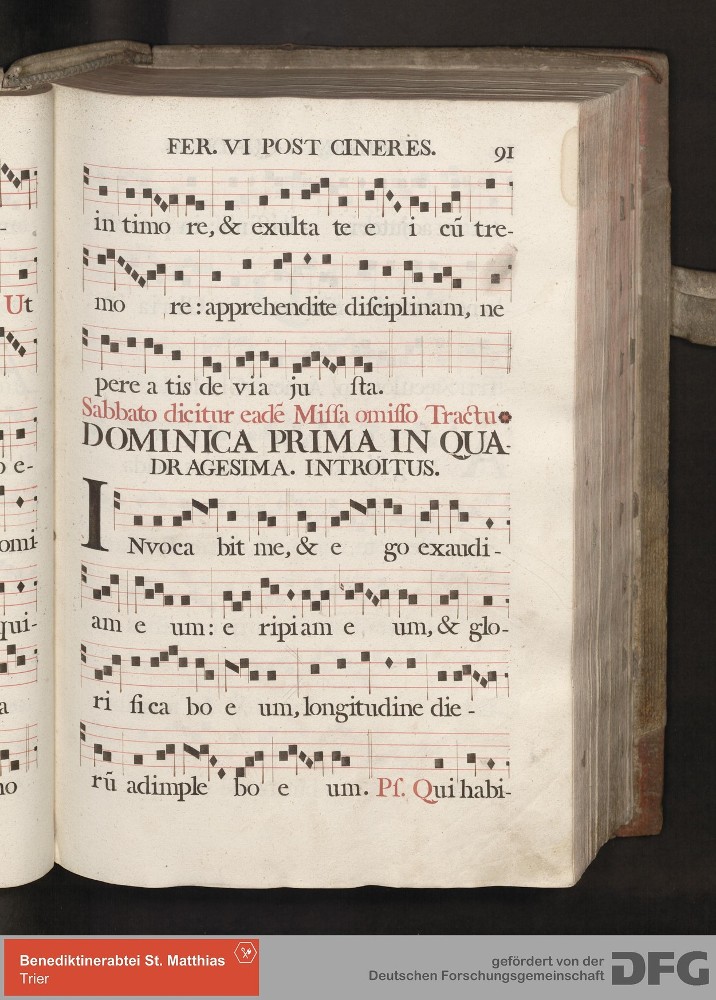 FER. VI POST CINERES. 91
in timo re, & exulta te e i cū tre-
mo re: apprehendite diſciplinam, ne
Ut
pere a tis de via ju ſta.
Sabbato dicitur eadē Miſſa omiſſo Tractu
DOMINICA PRIMA IN QUA-
DRAGESIMA. INTROITUS.
INvoca bit me, & e go exaudi-
omi-
am e um: e ripiam e um, & glo-
qui-
ri fi ca bo e um, longitudine die-
a
rū adimple bo e um. Pſ. Qui habi-
Benediktinerabtei St. Matthias
Trier
gefördert von der
Deutschen Forschungsgemeinschaft
DFG